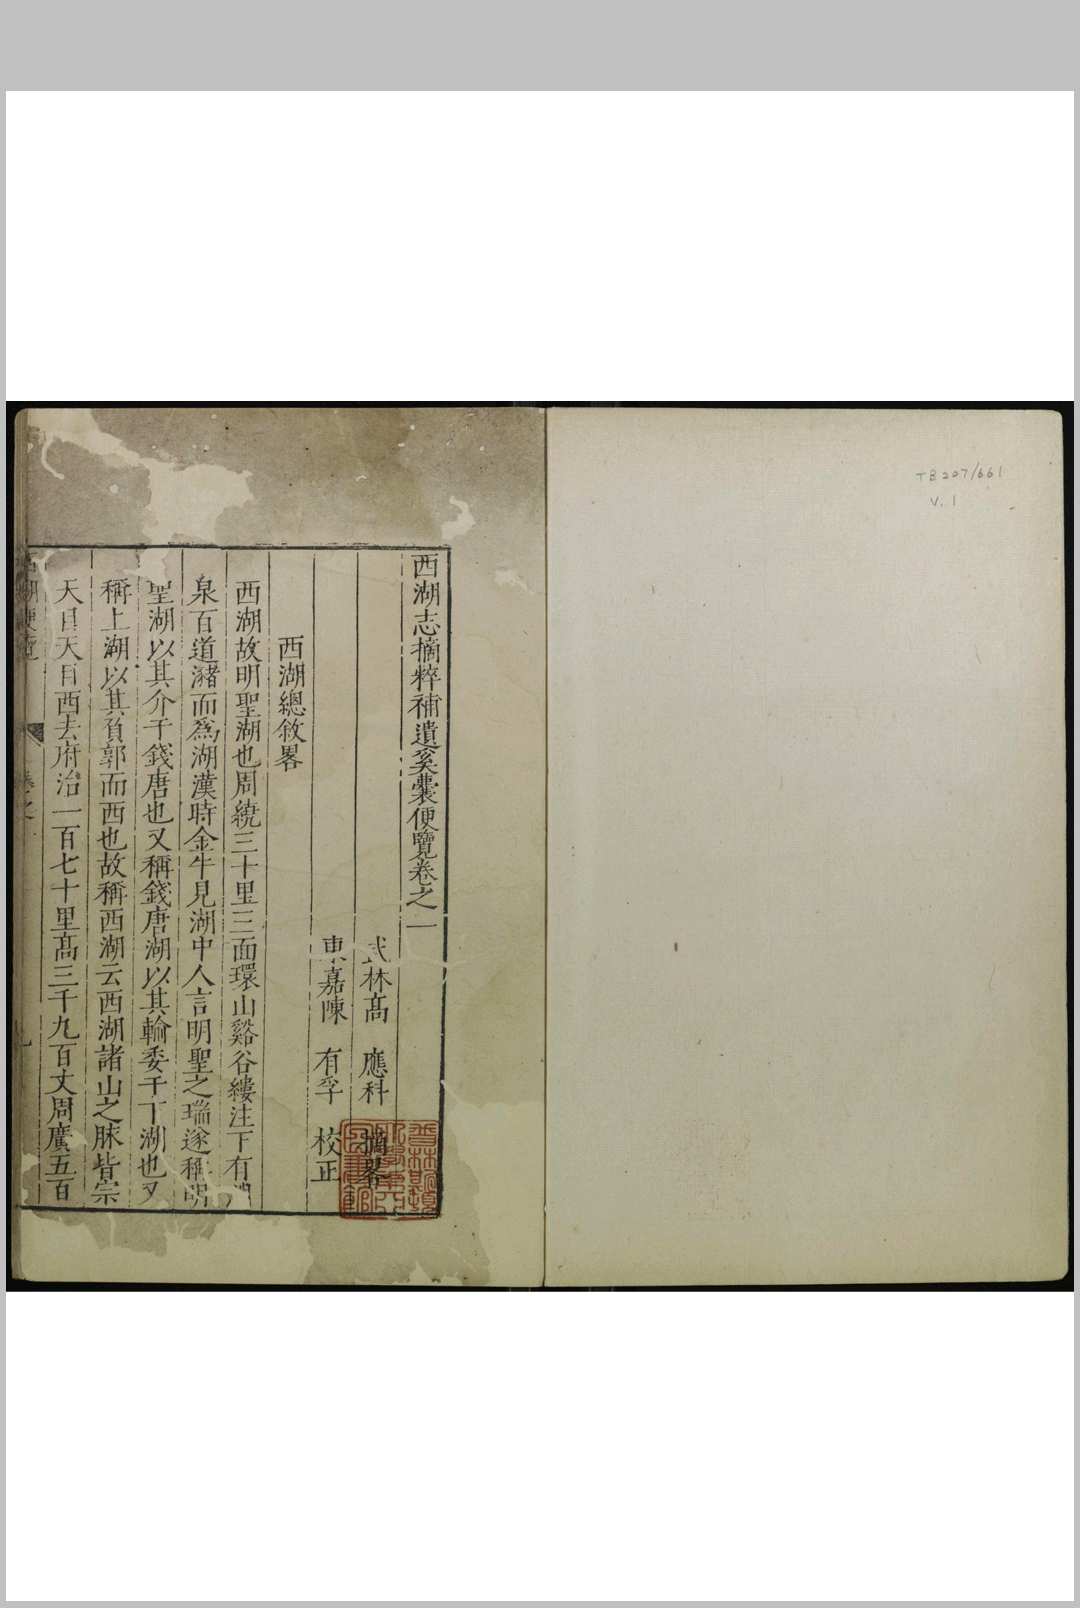 TB 207/661
V. 1
西湖志摘粹補遺奚囊便覽卷之一
武林高 應科 摘畧
東嘉陳 有孚 校正
西湖總敘畧
西湖故明聖湖也周繞三十里三面環山谿谷縷注下有
泉百道瀦而爲湖漢時金牛見湖中人言明聖之瑞遂稱明
聖湖以其介于錢唐也又稱錢唐湖以其輸委于下湖也又
稱上湖以其負郭而西也故稱西湖云西湖諸山之脉皆宗
天目天目西去府治一百七十里高三千九百丈周廣五百
西湖便覽 卷之一